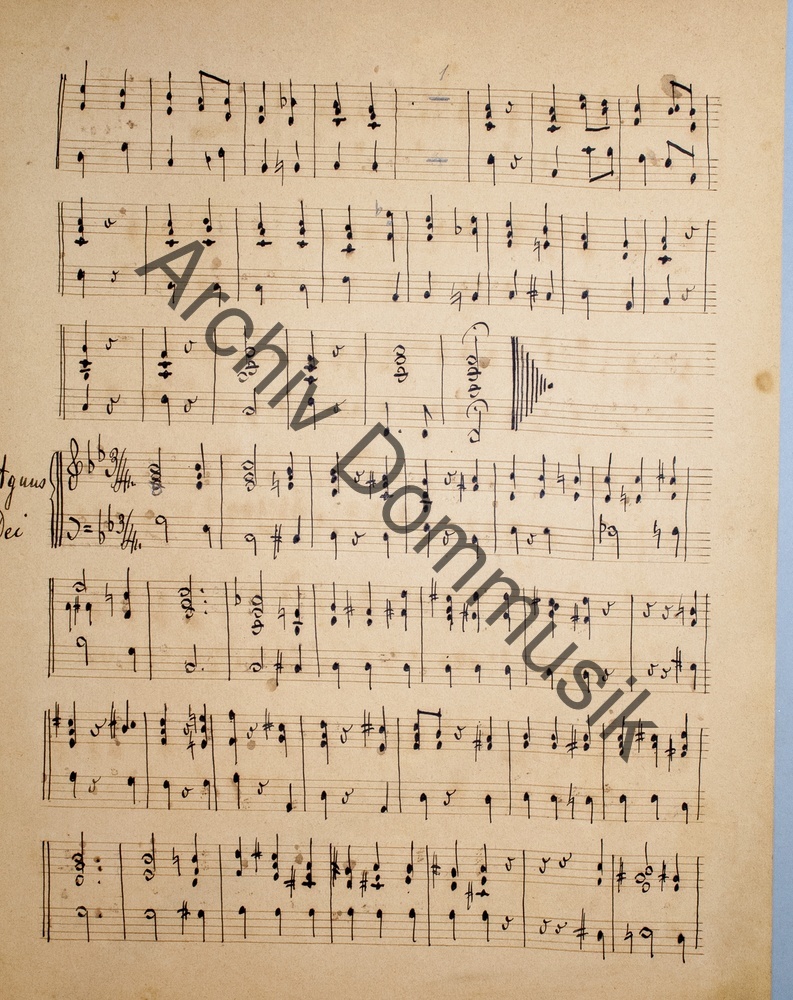 1.
Agnus
Dei
3/4
3/4
Archiv Dommusik